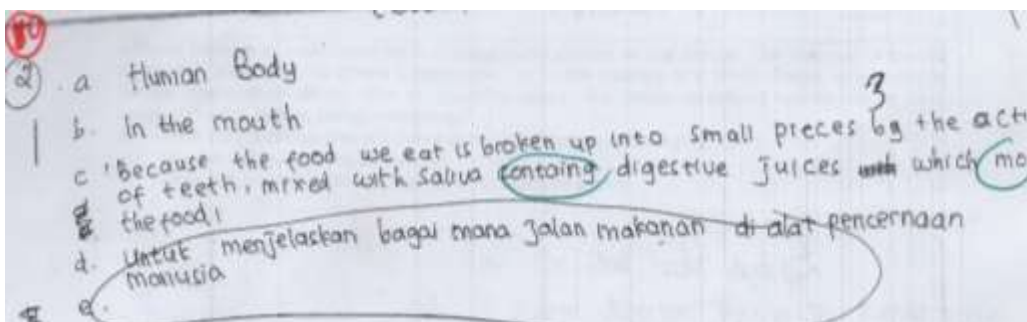 2. a Human Body
3
b. In the mouth
c "Because the food we eat is broken up into small preces by the act
of teeth, mrxed with Saliva containg digestive juices which mo
the food,
d. Untuk menjelaskan bagai mana jalan makanan di alat pencernaan
manusia
e.